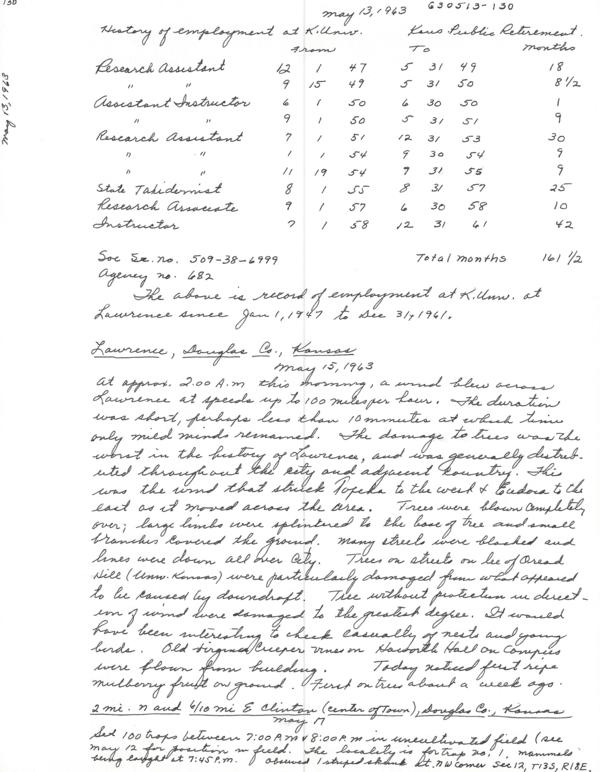 130
May 13, 1963 630513-130
History of employment at K. Univ. Kans Public Retirement.
From To months
Research Assistant 12 1 47 5 31 49 18
" " 9 15 49 5 31 50 8 1/2
Assistant Instructor 6 1 50 6 30 50 1
" " 9 1 50 5 31 51 9
Research Assistant 7 1 51 12 31 53 30
" " 1 1 54 9 30 54 9
" " 11 19 54 7 31 55 9
State Taxidermist 8 1 55 8 31 57 25
Research Associate 9 1 57 6 30 58 10
Instructor 7 1 58 12 31 61 42
Soc Se. no. 509-38-6999 Total months 161 1/2
Agency no. 682
The above is record of employment at K. Univ. at
Lawrence since Jan 1, 1947 to Dec 31, 1961.
Lawrence, Douglas Co., Kansas
May 15, 1963
At approx. 2:00 A.M. this morning, a wind blew across
Lawrence at speeds up to 100 miles per hour. The duration
was short, perhaps less than 10 minutes at which time
only mild winds remained. The damage to trees was the
worst in the history of Lawrence, and was generally distrib-
uted throughout the city and adjacent country. This
was the wind that struck Topeka to the west & Eudora to the
east as it moved across the area. Trees were blown completely
over; large limbs were splintered to the base of tree and small
branches covered the ground. Many streets were blocked and
lines were down all over City. Trees on streets on lee of Oread
Hill (Univ. Kansas) were particularly damaged from what appeared
to be caused by downdraft. Tree without protection in direct-
ion of wind were damaged to the greatest degree. It would
have been interesting to check casually of nests and young
birds. Old Virginia Creeper vines on Haworth Hall on Campus
were blown from building. Today noticed first ripe
mulberry fruit on ground. First on trees about a week ago.
2 mi. N and 6/10 mi E Clinton (center of Town), Douglas Co., Kansas
May 17
Set 100 traps between 7:00 P.M & 8:00 P.M in uncultivated field (see
May 12 for position in field. The locality is for trap no. 1, mammals
being caught at 7:45 P.M. observed 1 striped skunk at NW corner Sec 12, T13S, R18E.
May 13, 1963